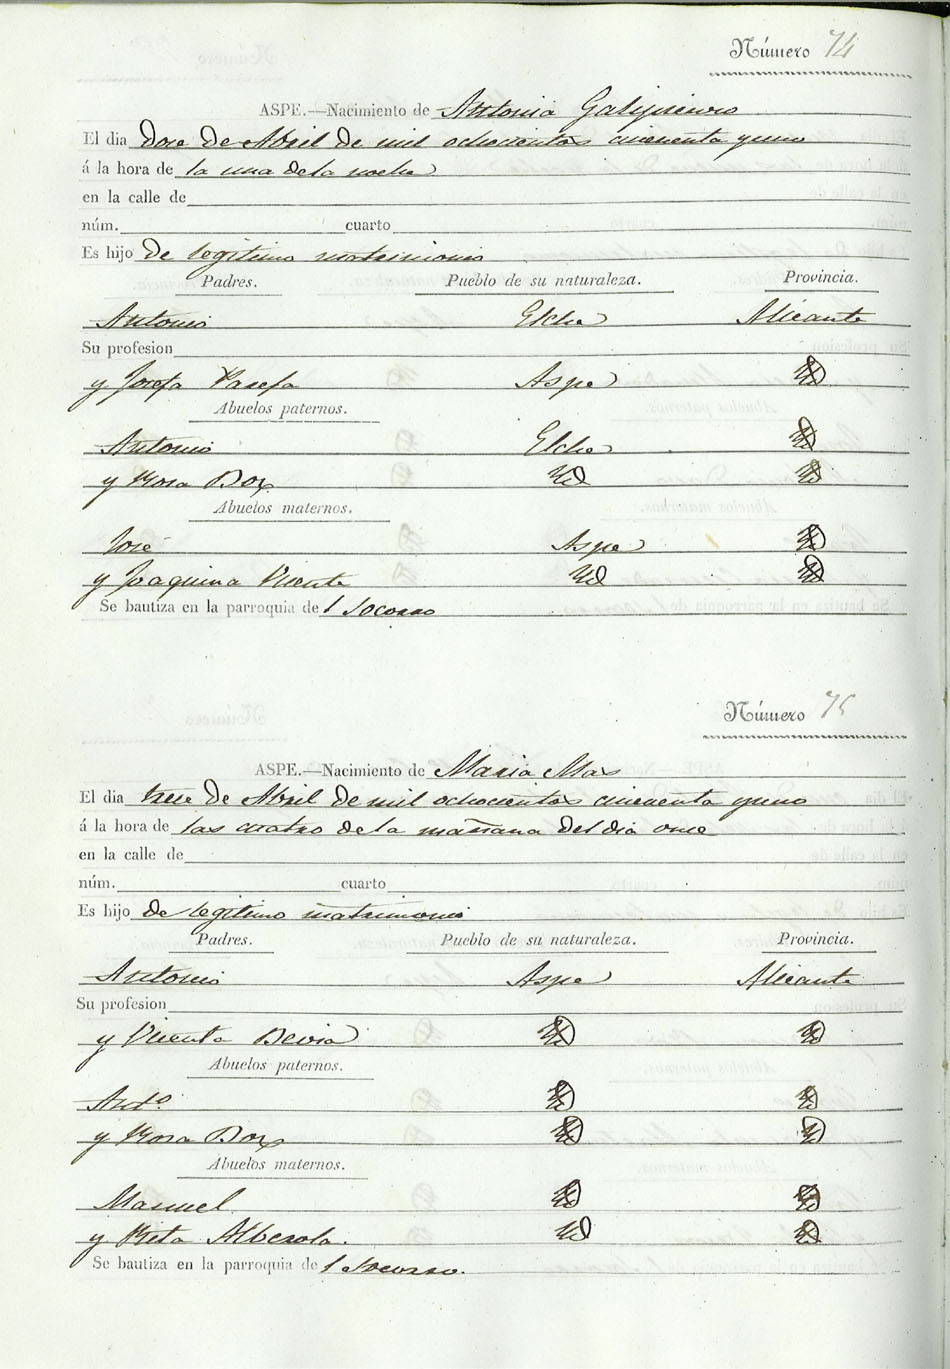 Número 74
ASPE.—Nacimiento de Antonia Galipienso
El dia dose de Abril de mil ochocientos cincuenta y uno
á la hora de la una de la noche
en la calle de
núm. cuarto
Es hijo de legitimo matrimonio
Padres. Pueblo de su naturaleza. Provincia.
Antonio Elche Alicante
Su profesion
y Josefa Aspe Yd
Abuelos paternos.
Antonio Elche Yd
y Rosa Box Yd Yd
Abuelos maternos.
José Aspe Yd
y Joaquina Vicente Yd Yd
Se bautiza en la parroquia del Socorro
Número 75
ASPE.—Nacimiento de Maria Mas
El dia trece de Abril de mil ochocientos cincuenta y uno
á la hora de las cuatro de la mañana del dia once
en la calle de
núm. cuarto
Es hijo de legitimo matrimonio
Padres. Pueblo de su naturaleza. Provincia.
Antonio Aspe Alicante
Su profesion
y Vicenta Bevia Yd Yd
Abuelos paternos.
Antº Yd Yd
y Rosa Box Yd Yd
Abuelos maternos.
Manuel Yd Yd
y Rita Alberola. Yd Yd
Se bautiza en la parroquia del Socorro.